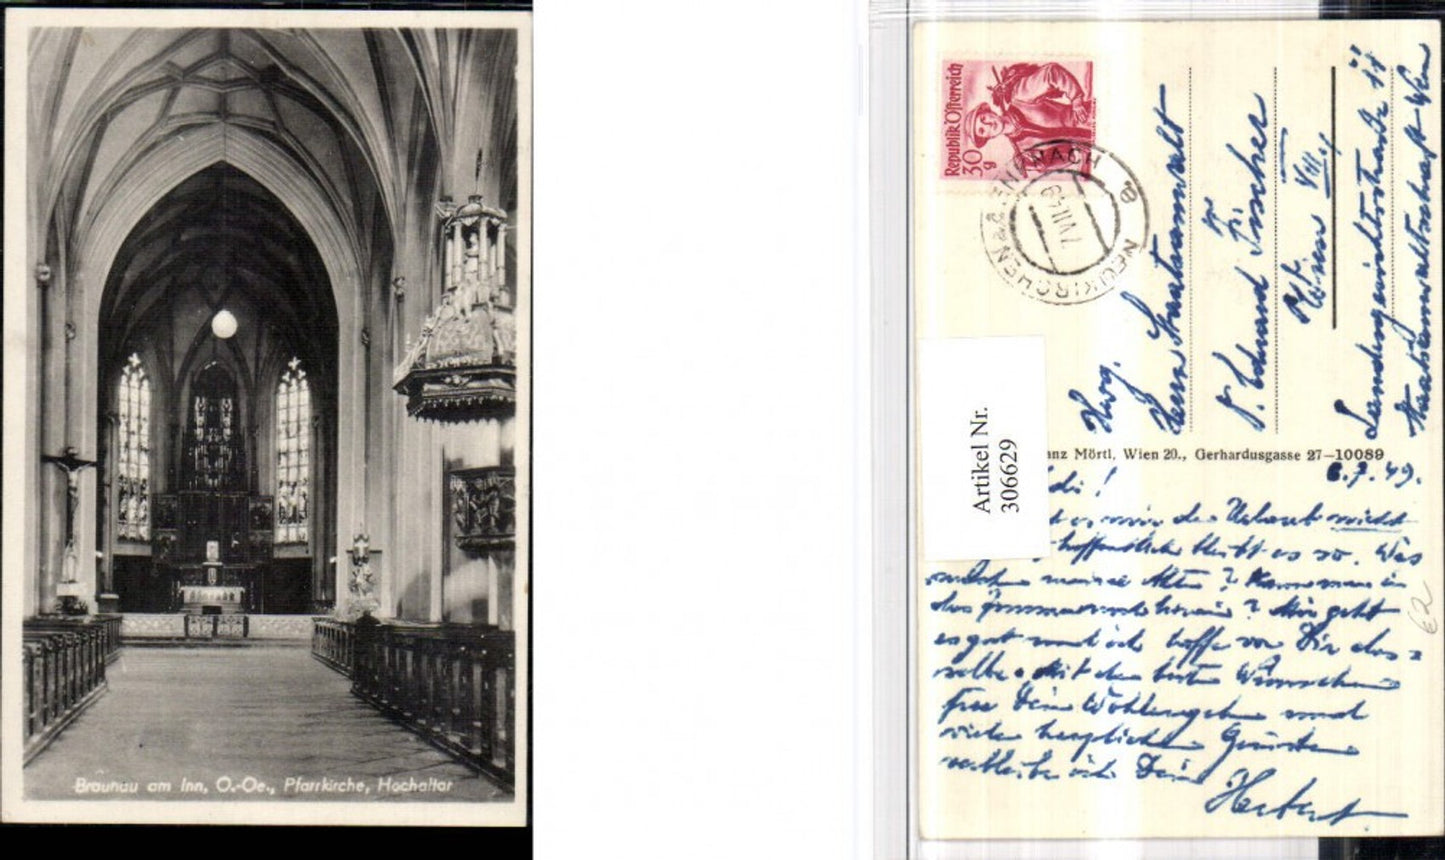 Braunau am Inn, O.-Oe., Pfarrkirche, Hochaltar
Republik Österreich
30 g
NEUKIRCHEN a.d. ENKNACH
7.VII.49
8
Herrn Staatsanwalt
Eduard Fischer
Wien VIII.
Landesgerichtsstraße 11
Staatsanwaltschaft Wien
Artikel Nr.
306629
anz Mörtl, Wien 20., Gerhardusgasse 27—10089
6.7.49.
di!
mir der Urlaub nicht
hoffentlich bleibt es so. Was
machen meine Akten? Kann man in
das Zimmer noch hinein? Mir geht
es gut und ich hoffe von Dir das-
selbe. Mit den besten Wünschen
für Dein Wohlergehen und
vielen herzlichen Grüßen
verbleibe ich Dein
Herbert
€2